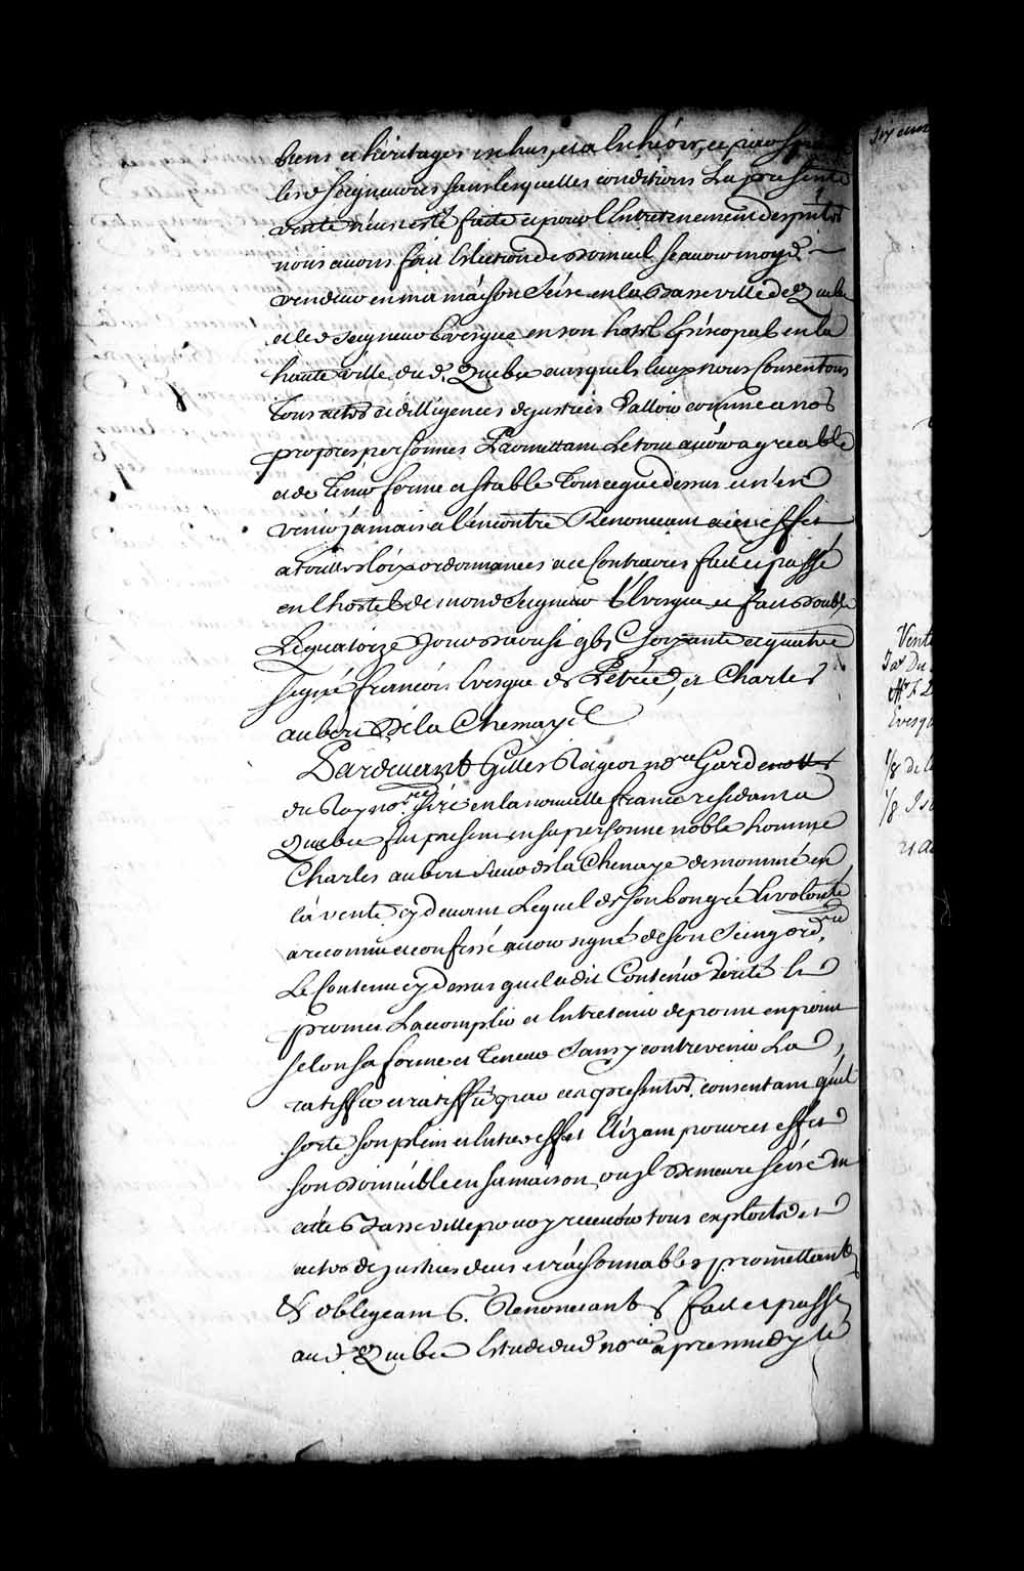 biens et héritages eschus, et a eschéoir, ce pre
les d. Seigneuries sans lesquelles conditions La presente
vente n'eust esté faite et pour l'Entretenement des pntes
nous avons fait Election de Domicile scavoir moyd.
vendeur en ma máison Séize en la basse ville de Quebec
et led. Seigneur Evesque en son hostel Episcopal en la
haute ville dud. Quebec auxquels lieux nous Consentons
tous actes et dilligences de justices Valloir comme a nos
propres personnes Promettant Le tout avoir agreable
et de tenir ferme et stable tout ce que dessus sans y
venir jamais a l'encontre Renonceant a cet effet
a toutes loix ordonnances a ce Contraires fait et passé
en l'hostel de mond. Seigneur l'Evesque et fait double
Le quatorze Jour gbc Soixante et quatre
signé francois Evesque de Petrée, et Charles
aubert De la Chenaye
Pardevant Gilles Rageot nore Gardenotte
du Roy nore Siré en la nouvelle france residant a
Quebec fut present en sa personne noble homme
Charles aubert Sieur de la Chenaye denommé en
la vente cy devant Lequel de son bon gré et volonté
a reconnu et confessé avoir signé de son Seing ordre
Le Contenu cy dessus qu'il a dit Contenir vérité le
promet L'accomplir et Entretenir de point en point
selon sa forme et teneur Sans y contrevenir La
ratiffie et ratiffié par ces presentes, consentant qu'il
sorte son plein et entier effet Elizant pour cet effet
son Domicile en sa máison ou il Demeure séize en
cette basse ville pour y recevoir tous exploits et
actes de justices deus et raisonnables promettant
& obligeant & Renonceant & fait et passé
aud. Quebec Estude dud. nore apres midy le
Vente
Evesq
1/8 de l
1/8